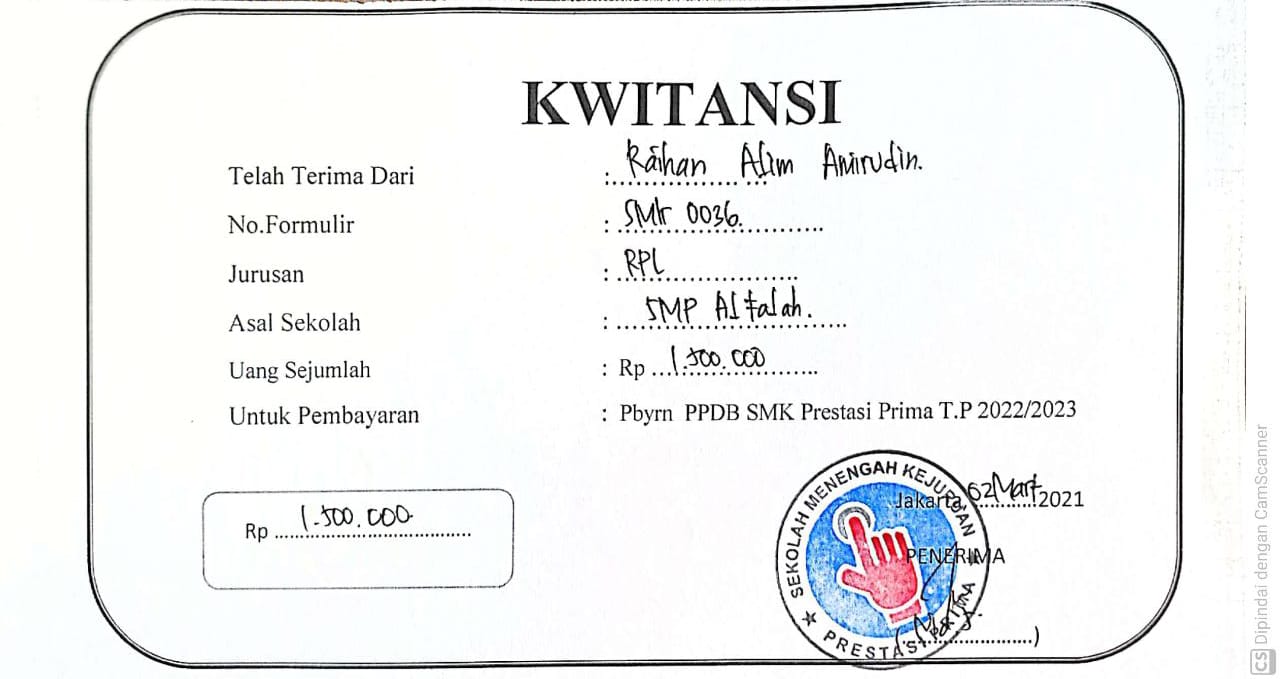 KWITANSI
Telah Terima Dari : Raihan Alim Amirudin.
No.Formulir : SMK 0036.
Jurusan : RPL
Asal Sekolah : SMP Alfalah.
Uang Sejumlah : Rp 1.500.000
Untuk Pembayaran : Pbyrn PPDB SMK Prestasi Prima T.P 2022/2023
Rp 1.500.000
SEKOLAH MENENGAH KEJURUAN
Jakarta 02 Mart 2021
PENERIMA
★ PRESTASI PRIMA ★
CS Dipindai dengan CamScanner